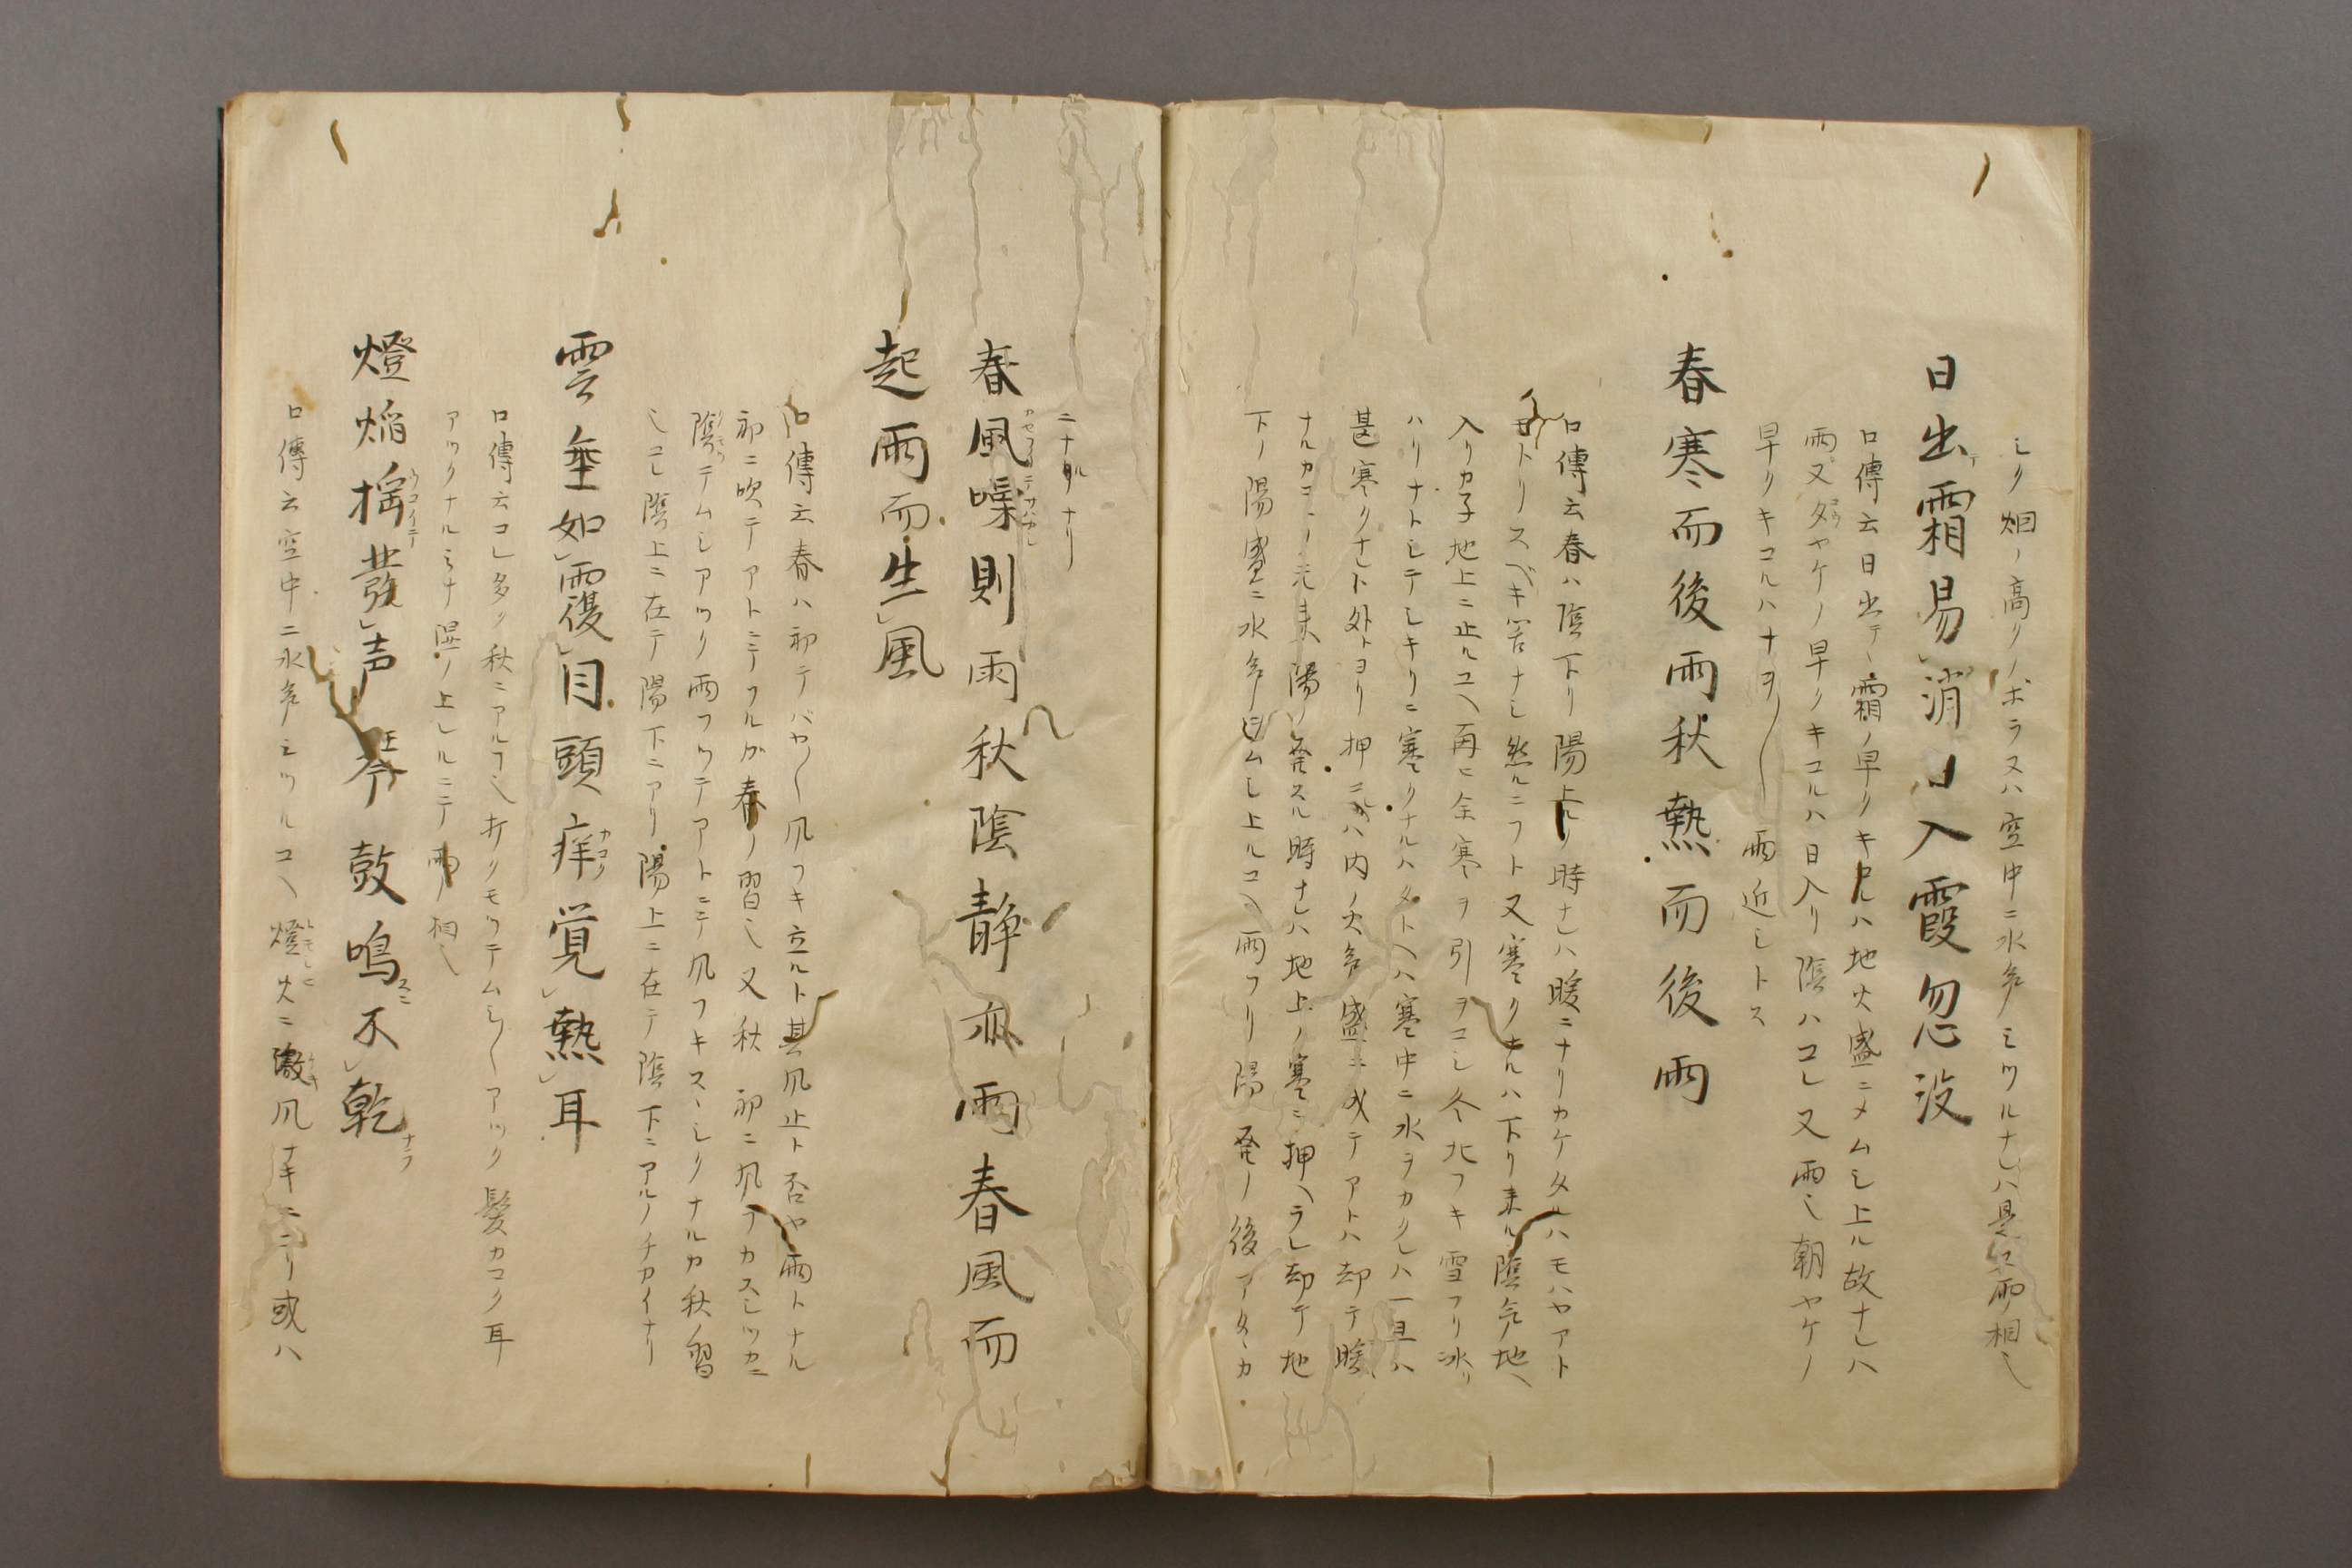 シク烟ノ高クノボラスハ空中ニ水多ミツルナレハ是又雨ノ相也
日出テ霜易消日入霞忽没
口傳云日出テ霜ノ早クキルハ地火盛ニメムシ上ル故ナレハ
雨又夕ヤケノ早クキユルハ日入リ陰ハコレ又雨也朝ヤケノ
早クキユルハナヲ〳〵雨近シトス
春寒而後雨秋熱而後雨
口傳云春ハ陰下リ陽上ル時ナレハ暖ニナリカケタルハモハヤアト
モトリスベキ筈ナシ然ルニフト又寒クナルハ下リ来ル陰気地ヘ
入リカ子地上ニ止ルユヘ再ヒ余寒ヲ引ヲコシ冬北フキ雪フリ氷リ
ハリナトシテシキリニ寒クナルハタトヘハ寒中ニ水ヲカクレハ一旦ハ
甚寒クナレト外トヨリ押ニハ内ノ火多盛ニ成テアトハ却テ暖
ナルカコトノ元来陽ノ発スル時ナレハ地上ノ寒ニ押ヘラレ却テ地
下ノ陽盛ニ水多ムシ上ルユヘ雨フリ陽発ノ後アタヽカ
ニナルナリ
春風噪則雨秋陰静亦雨春風而
起雨而生風
口傳云春ハ初テバヤ〳〵風フキ立ルト其風止ト否ヤ雨トナル
初ニ吹テアトニテフルガ春ノ習也又秋初ニ風テカスシツカニ
陰テムシアツク雨フツテアトニテ風フキスヽシクナルカ秋ノ習
也コレ陰上ニ在テ陽下ニアリ陽上ニ在テ陰下ニアルノチカイナリ
雲垂如覆目頭痒覚熱耳
口傳云コレ多ク秋ニアルフ也打クモツテムシ〳〵アツク髪カユク耳
アツクナルミナ湿ノ上レルニテ雨ノ相也
燈焔揺發声琴鼓鳴不乾
口傳云空中ニ水多ミツルユヘ燈火ニ激風ナキニニリ或ハ